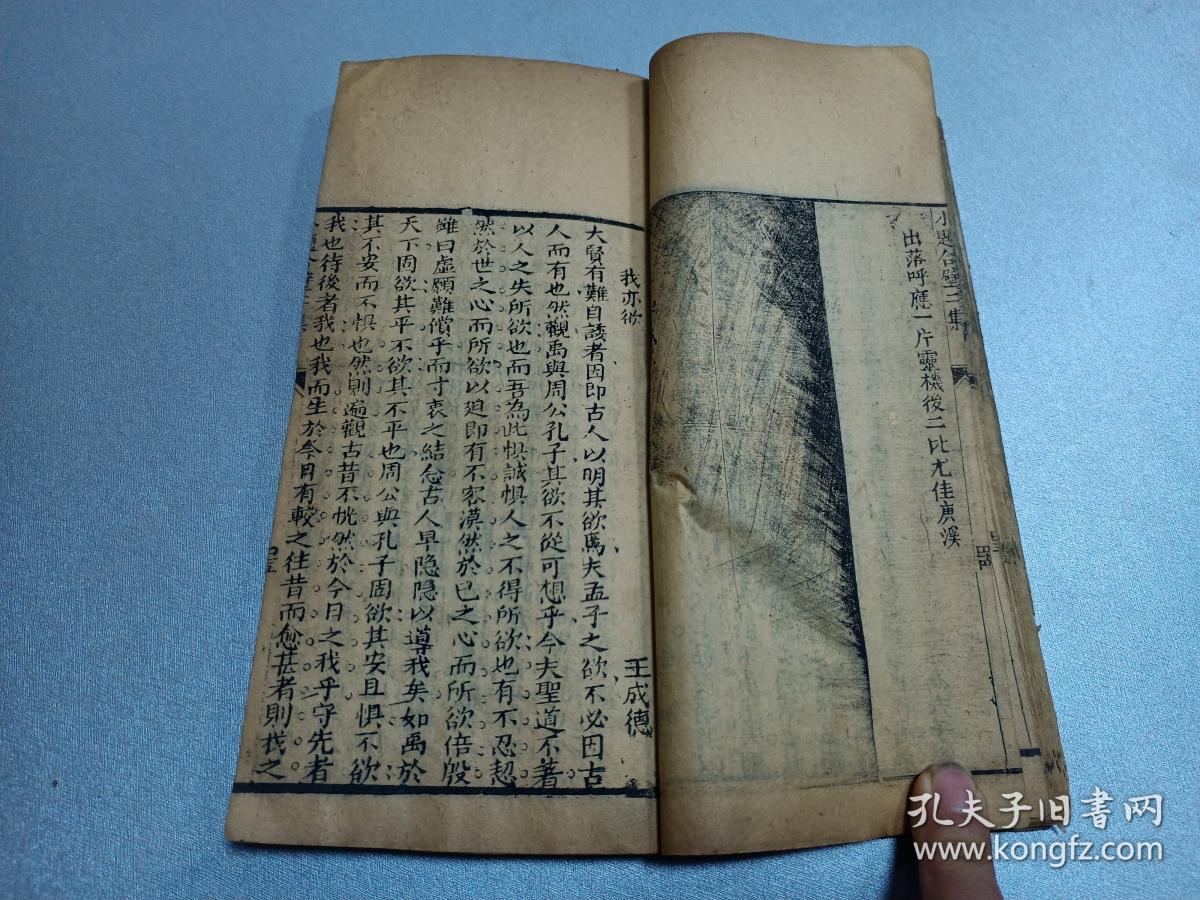 小題合璧二集
出落呼應一片靈機後二比尤佳庚溪
我亦欲
王成德
大賢有難自諉者因即古人以明其欲焉夫孟子之欲不必因古
人而有也然觀禹與周公孔子其欲不從可想乎今夫聖道不著
以人之失所欲也而吾為此惧誠惧人之不得所欲也有不忍恝
然於世之心而所欲以迫即有不容漠然於已之心而所欲倍殷
雖曰虛願難償乎而寸衷之結念古人早隐隱以導我矣如禹於
天下固欲其平不欲其不平也周公與孔子固欲其安且惧不欲
其不安而不惧也然則遍觀古昔不恍然於今日之我乎守先者
我也待後者我也我而生於今日有較之往昔而愈甚者則我之
孔夫子旧书网
www.kongfz.com